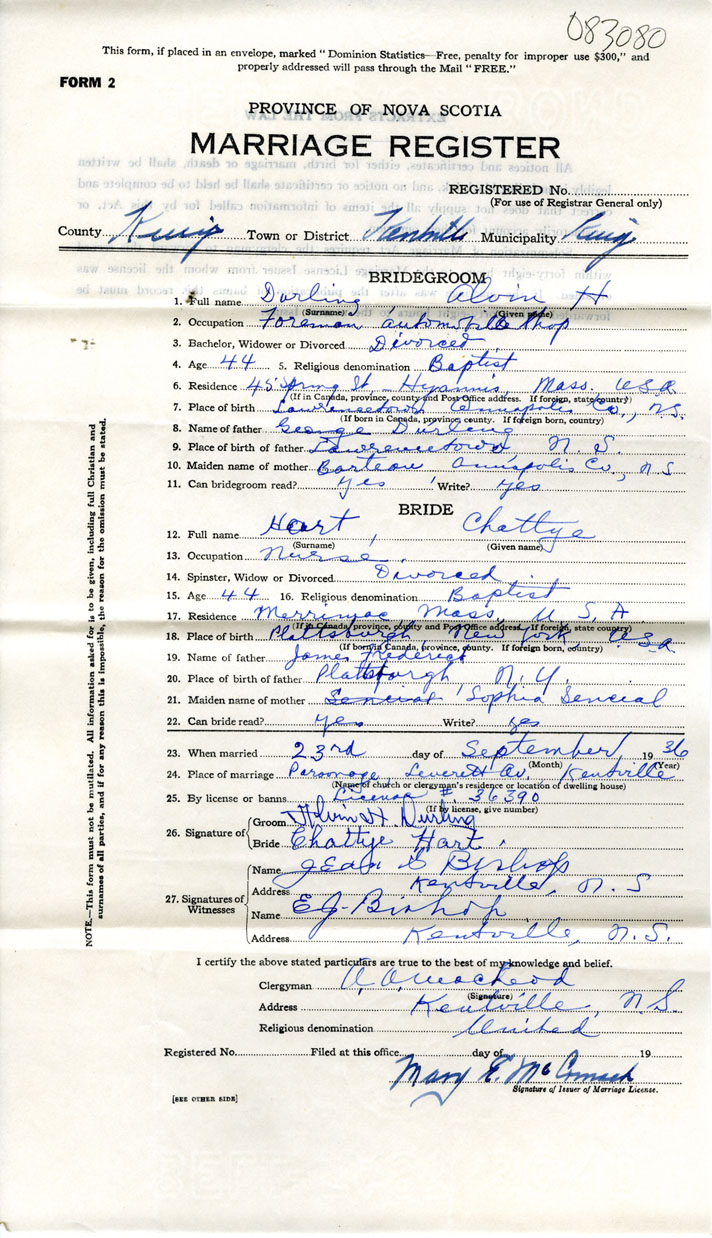 083080
This form, if placed in an envelope, marked "Dominion Statistics—Free, penalty for improper use $300," and
properly addressed will pass through the Mail "FREE."
FORM 2
PROVINCE OF NOVA SCOTIA
MARRIAGE REGISTER
REGISTERED No.
(For use of Registrar General only)
County Kings Town or District Kentville Municipality Kings
BRIDEGROOM
1. Full name Durling Alvin H
(Surname) (Given name)
2. Occupation Foreman automobile shop
3. Bachelor, Widower or Divorced Divorced
4. Age 44 5. Religious denomination Baptist
6. Residence 45 Spring St. Hyannis, Mass. U.S.A
(If in Canada, province, county and Post Office address. If foreign, state country)
7. Place of birth Lawrencetown Annapolis Co., N.S.
(If born in Canada, province, county. If foreign born, country)
8. Name of father George Durling
9. Place of birth of father Lawrencetown N. S.
10. Maiden name of mother Barteau Annapolis Co, N S
11. Can bridegroom read? yes Write? yes
BRIDE
12. Full name Hart, Chattye
(Surname) (Given name)
13. Occupation Nurse
14. Spinster, Widow or Divorced Divorced
15. Age 44 16. Religious denomination Baptist
17. Residence Merrimac Mass, U S A
(If in Canada, province, county and Post Office address. If foreign, state country)
18. Place of birth Plattsburgh New York U S a
(If born in Canada, province, county. If foreign born, country)
19. Name of father James
20. Place of birth of father Plattsburgh, N. Y.
21. Maiden name of mother Senecial Sophia Senecial
22. Can bride read? yes Write? yes
23. When married 23rd day of September 1936
(Month) (Year)
24. Place of marriage Parsonage, Leverett Av. Kentville
(Name of church or clergyman's residence or location of dwelling house)
25. By license or banns License # 36390
(If by license, give number)
26. Signature of
Groom Alvin H. Durling
Bride Chattye Hart
27. Signatures of Witnesses
Name Jean S Bishop
Address Kentville, N. S
Name E J Bishop
Address Kentville, N.S.
I certify the above stated particulars are true to the best of my knowledge and belief.
Clergyman A. A. MacLeod
(Signature)
Address Kentville, N.S.
Religious denomination United
Registered No. Filed at this office day of 19
Mary E. McCormack
Signature of Issuer of Marriage License.
[SEE OTHER SIDE]
NOTE.—This form must not be mutilated. All information asked for is to be given, including full Christian and
surnames of all parties, and if for any reason this is impossible, the reason for the omission must be stated.